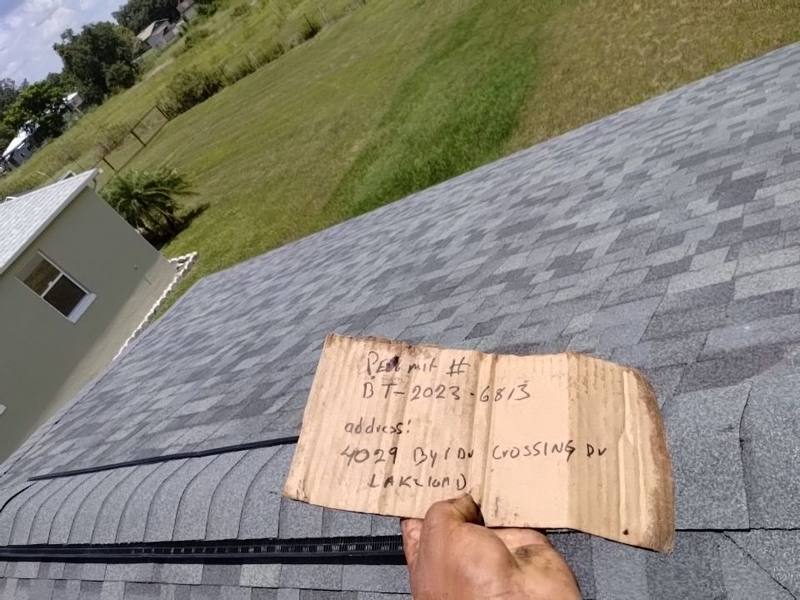 Permit #
BT-2023-6813
address:
4029 CROSSING Dr
LAKELAND